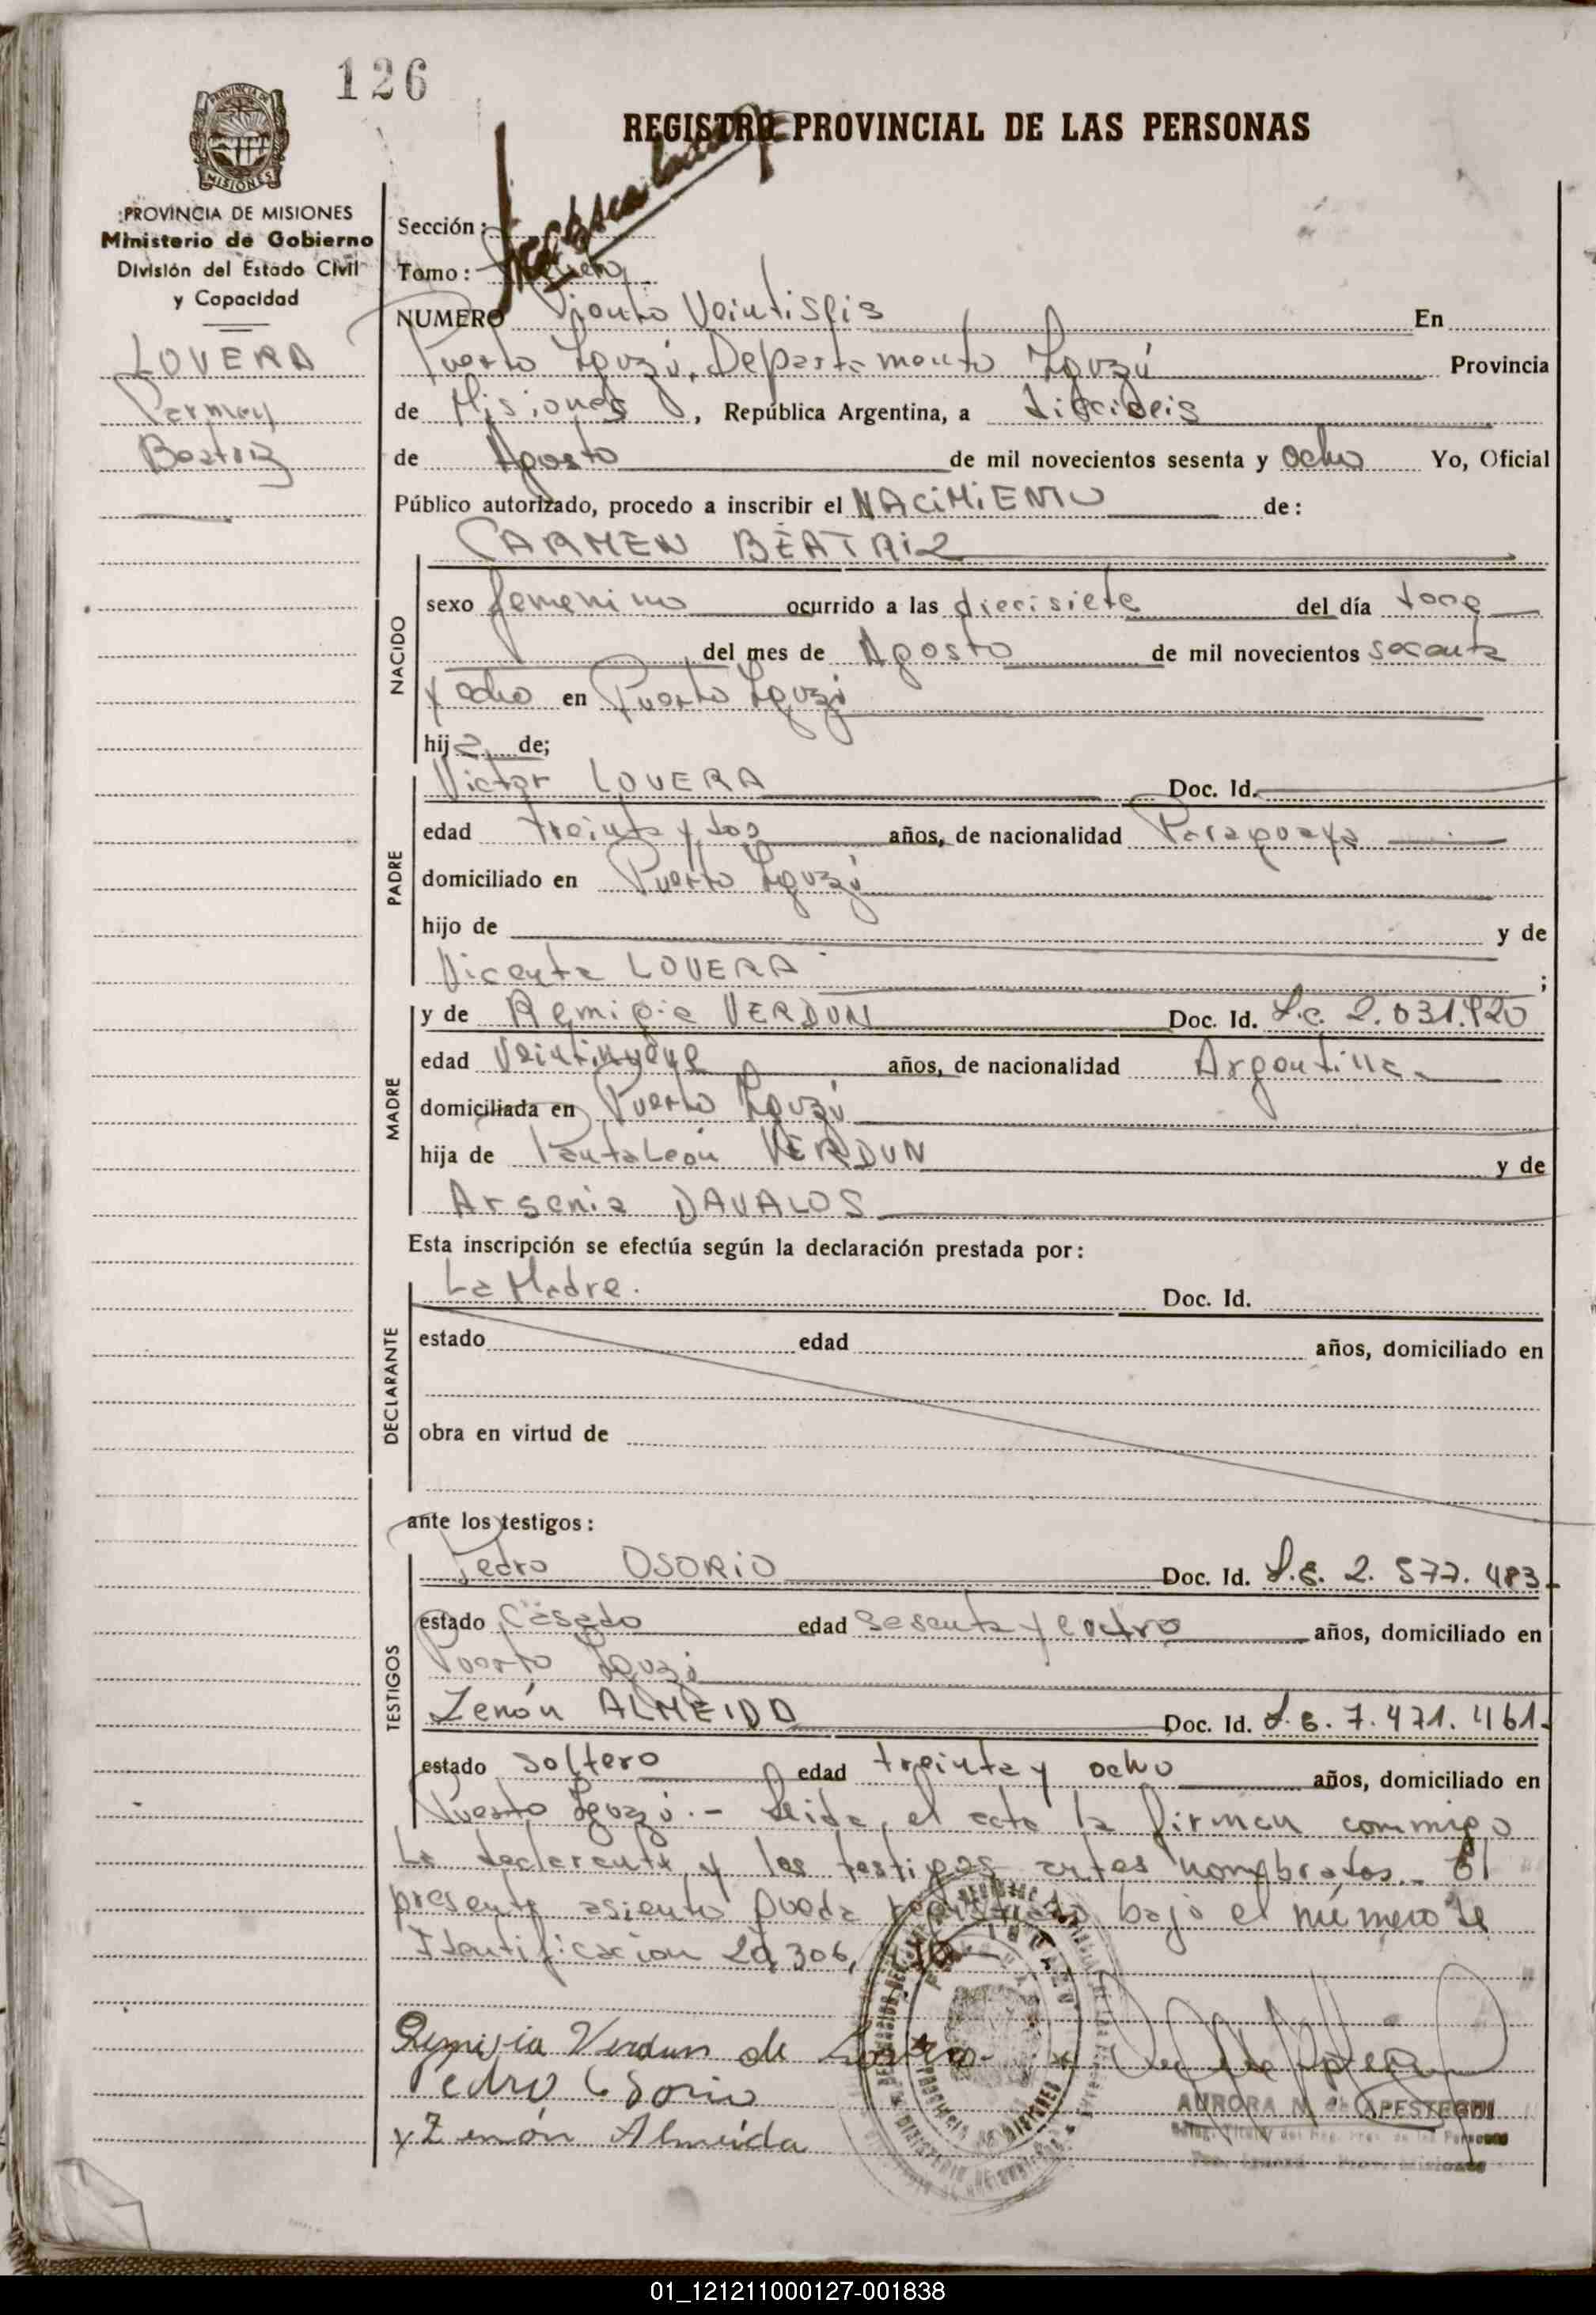 126
REGISTRO PROVINCIAL DE LAS PERSONAS
PROVINCIA DE MISIONES
Ministerio de Gobierno
División del Estado Civil
y Capacidad
LOVERA
Carmen
Beatriz
Sección:
Tomo:
NUMERO Ciento Veintiseis En
Puerto Iguazú, Departamento Iguazú Provincia
de Misiones, República Argentina, a dieciseis
de Agosto de mil novecientos sesenta y ocho Yo, Oficial
Público autorizado, procedo a inscribir el NACIMIENTO de:
CARMEN BEATRIZ
NACIDO
sexo femenino ocurrido a las diecisiete del día doce
del mes de Agosto de mil novecientos sesenta
y ocho en Puerto Iguazú
hija de;
PADRE
Victor LOVERA Doc. Id.
edad treinta y dos años, de nacionalidad Paraguaya
domiciliado en Puerto Iguazú
hijo de y de
Vicenta LOVERA ;
MADRE
y de Remigia VERDUN Doc. Id. L.C. 2.031.920
edad Veintinueve años, de nacionalidad Argentina
domiciliada en Puerto Iguazú
hija de Pantaleón VERDUN y de
Arsenia DAVALOS
Esta inscripción se efectúa según la declaración prestada por:
DECLARANTE
La Madre. Doc. Id.
estado edad años, domiciliado en
obra en virtud de
ante los testigos:
TESTIGOS
Pedro OSORIO Doc. Id. L.E. 2.577.483.
estado Casado edad sesenta y cuatro años, domiciliado en
Puerto Iguazú
Zenón ALMEIDA Doc. Id. L.E. 7.471.461.
estado soltero edad treinta y ocho años, domiciliado en
Puerto Iguazú.- Leida el acta la firman conmigo
La declarante y los testigos antes nombrados.- El
presente asiento queda registrado bajo el número de
Identificacion 20,306,
Remigia Verdun de Lovera
Pedro Osorio
y Zenón Almeida
AURORA N. de APESTEGUI
01_121211000127-001838